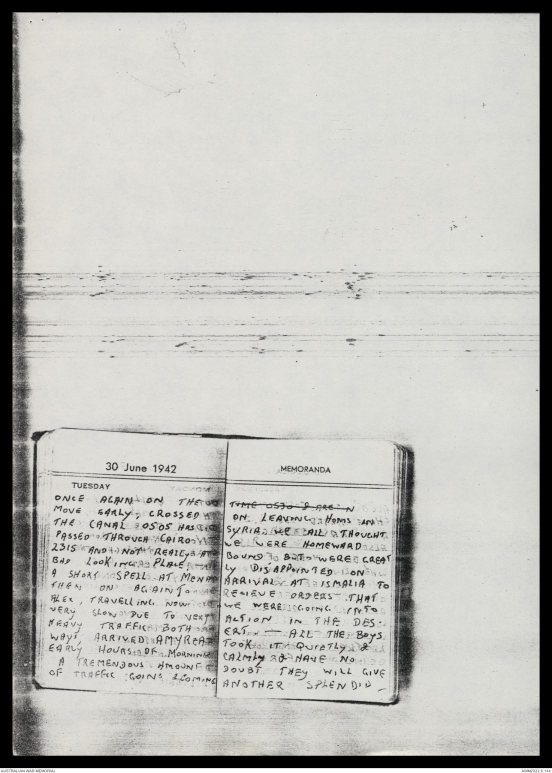 30 June 1942
TUESDAY
ONCE AGAIN ON THE
MOVE EARLY, CROSSED
THE CANAL 0505 HRS
PASSED THROUGH CAIRO
2315 AND NOT REALLY A
BAD LOOKING PLACE,
A SHORT SPELL AT MENA
THEN ON AGAIN TO
ALEX, TRAVELLING NOW
VERY SLOW DUE TO VERY
HEAVY TRAFFIC BOTH
WAYS, ARRIVED AMYREA
EARLY HOURS OF MORNING
A TREMENDOUS AMOUNT
OF TRAFFIC GOING & COMING
MEMORANDA
TIME 0530 & ARE
ON LEAVING HOMS IN
SYRIA WE ALL THOUGHT
WE WERE HOMEWARD
BOUND BUT WERE GREAT
LY DISAPPOINTED ON
ARRIVAL AT ISMALIA TO
RECIEVE ORDERS THAT
WE WERE GOING INTO
ACTION IN THE DES-
ERT. — ALL THE BOYS
TOOK IT QUIETLY &
CALMLY & HAVE NO
DOUBT THEY WILL GIVE
ANOTHER SPLENDID _
AUSTRALIAN WAR MEMORIAL